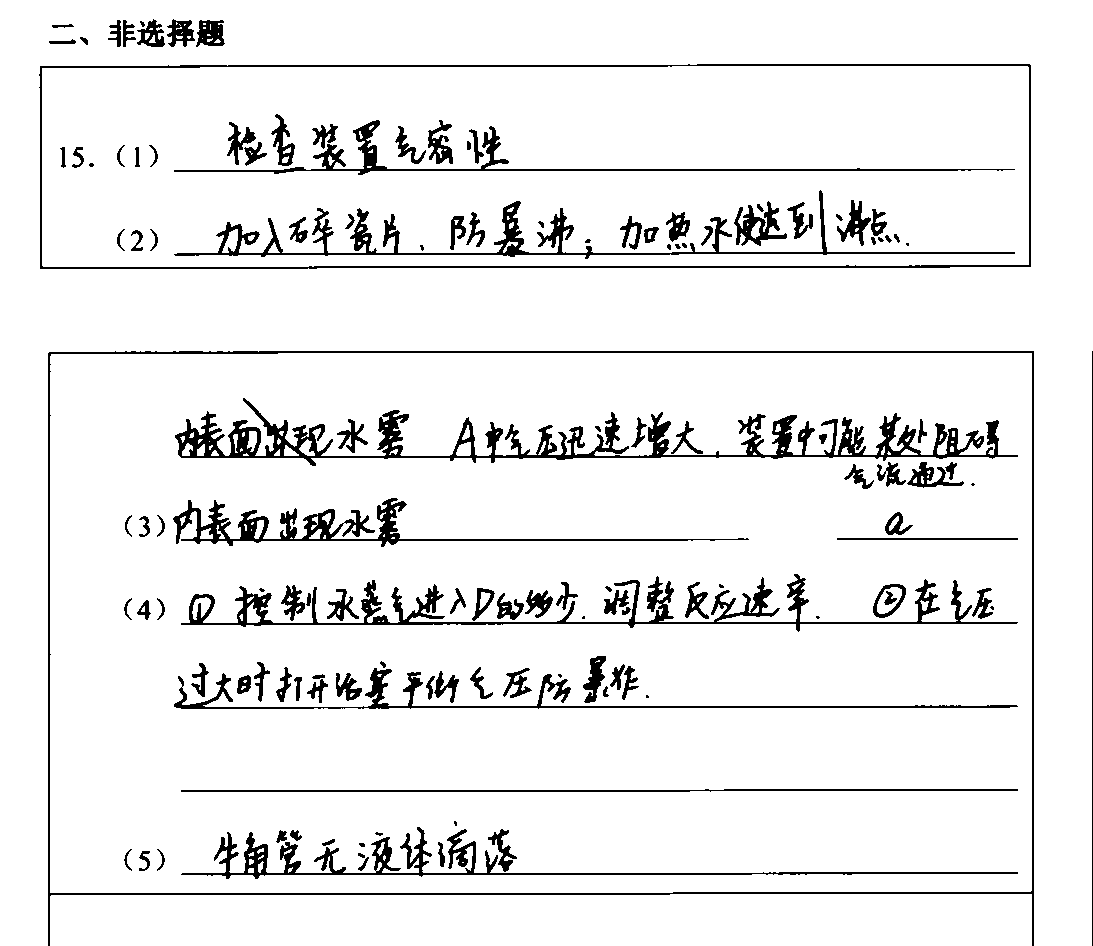 二、非选择题
15.（1） 检查装置气密性
（2） 加入碎瓷片、防暴沸；加热水使达到沸点.
内表面出现水雾 A中气压迅速增大，装置中可能某处阻碍
气流通过.
（3）内表面出现水雾 a
（4）① 控制水蒸气进入D的多少.调整反应速率. ②在气压
过大时打开活塞平衡气压防暴炸.
（5） 牛角管无液体滴落